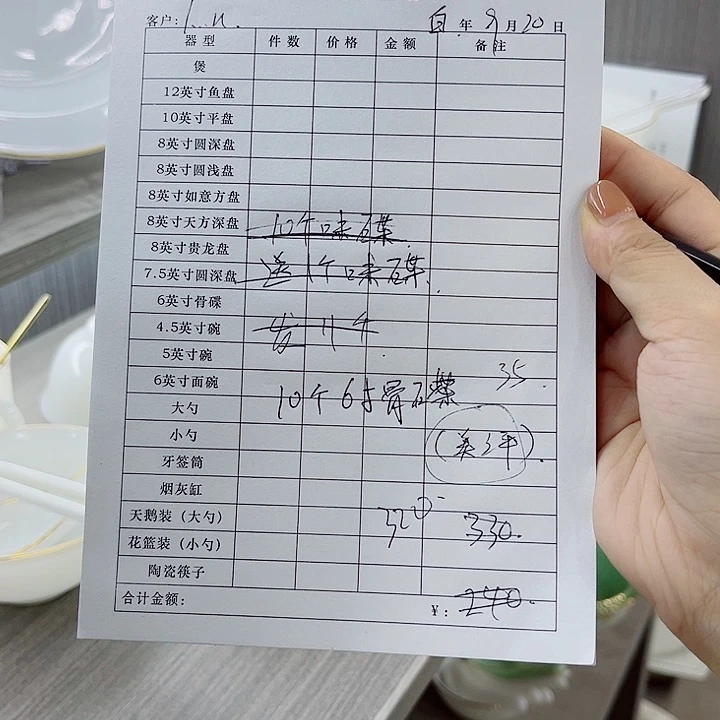 客户:
年 9 月 20 日
器型 件数 价格 金额 备注
煲
12英寸鱼盘
10英寸平盘
8英寸圆深盘
8英寸圆浅盘
8英寸如意方盘
8英寸天方深盘 10个味碟
8英寸贵龙盘
7.5英寸圆深盘 送1个味碟
6英寸骨碟
4.5英寸碗 发11个
5英寸碗
6英寸面碗 35
大勺 10个6寸骨碟
小勺
牙签筒
烟灰缸
天鹅装（大勺） 320 330
花篮装（小勺）
陶瓷筷子
合计金额: ¥: 240